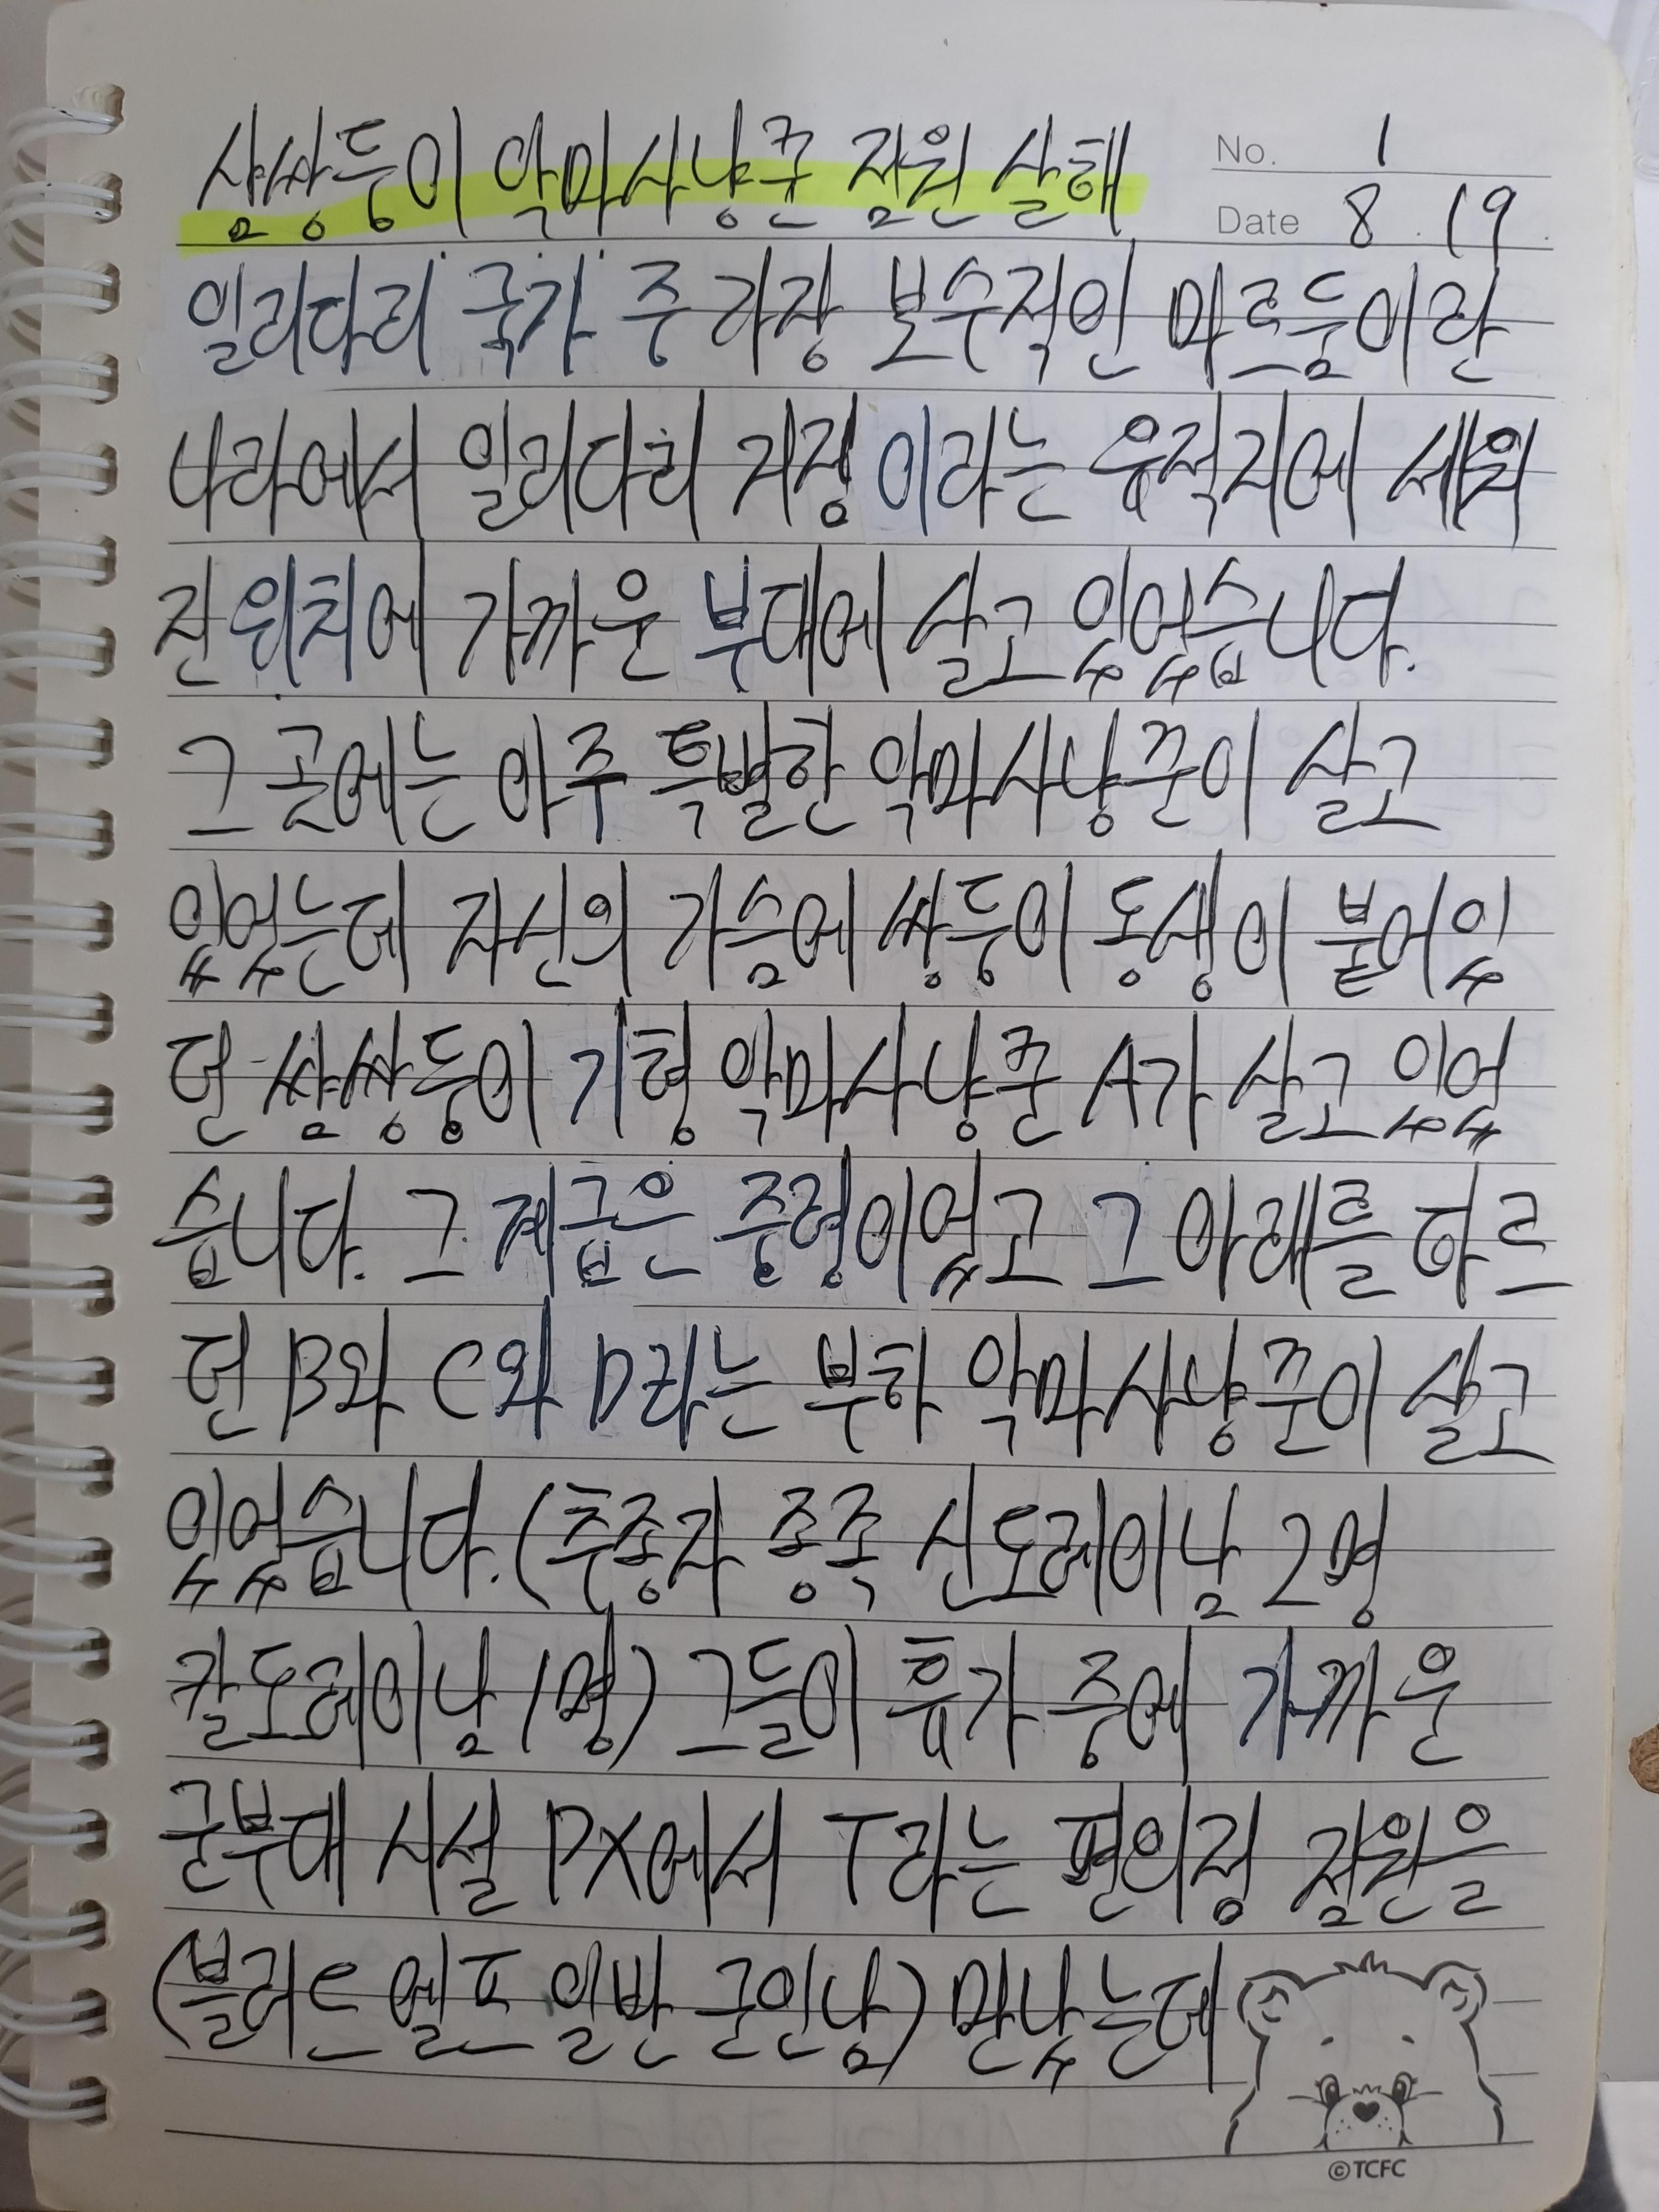 삼쌍둥이 악마사냥꾼 점원 살해
No. 1
Date 8 . 19 .
일리다리 국가 중 가장 보수적인 마르둠이란
나라에서 일리다리 거점 이라는 유적지에 세워
진 위치에 가까운 부대에 살고 있었습니다.
그 곳에는 아주 특별한 악마사냥꾼이 살고
있었는데 자신의 가슴에 쌍둥이 동생이 붙어있
던 샴쌍둥이 기형 악마사냥꾼 A가 살고 있었
습니다. 그 계급은 중령이었고 그 아래를 따르
던 B와 C와 D라는 부하 악마사냥꾼이 살고
있었습니다. (추종자 종족 신도레이남 2명
칼도레이남 1명) 그들이 휴가 중에 가까운
군부대 시설 PX에서 T라는 편의점 점원을
(블러드 엘프 일반 군인남) 만났는데
©TCFC